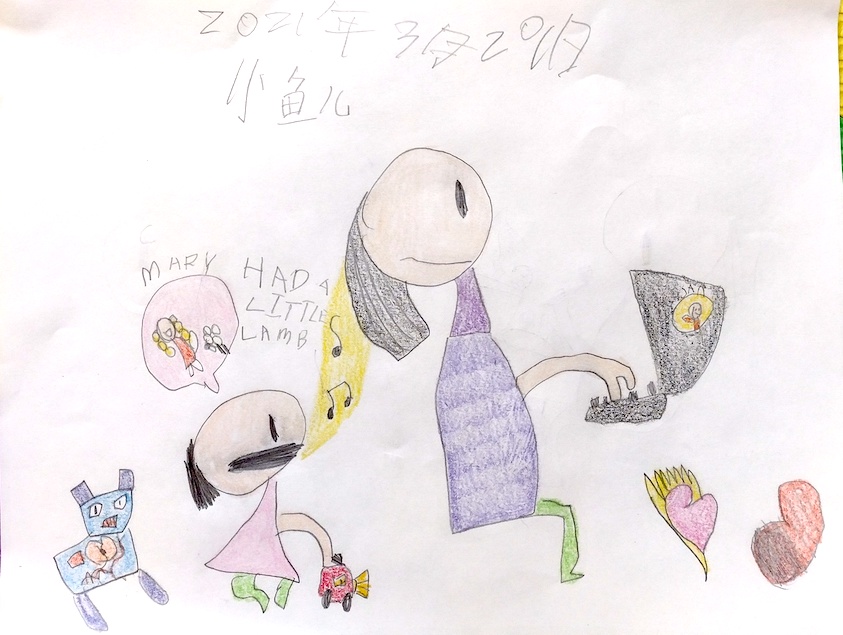 2021年3月20日
小鱼儿
MARY HAD A
LITTLE
LAMB